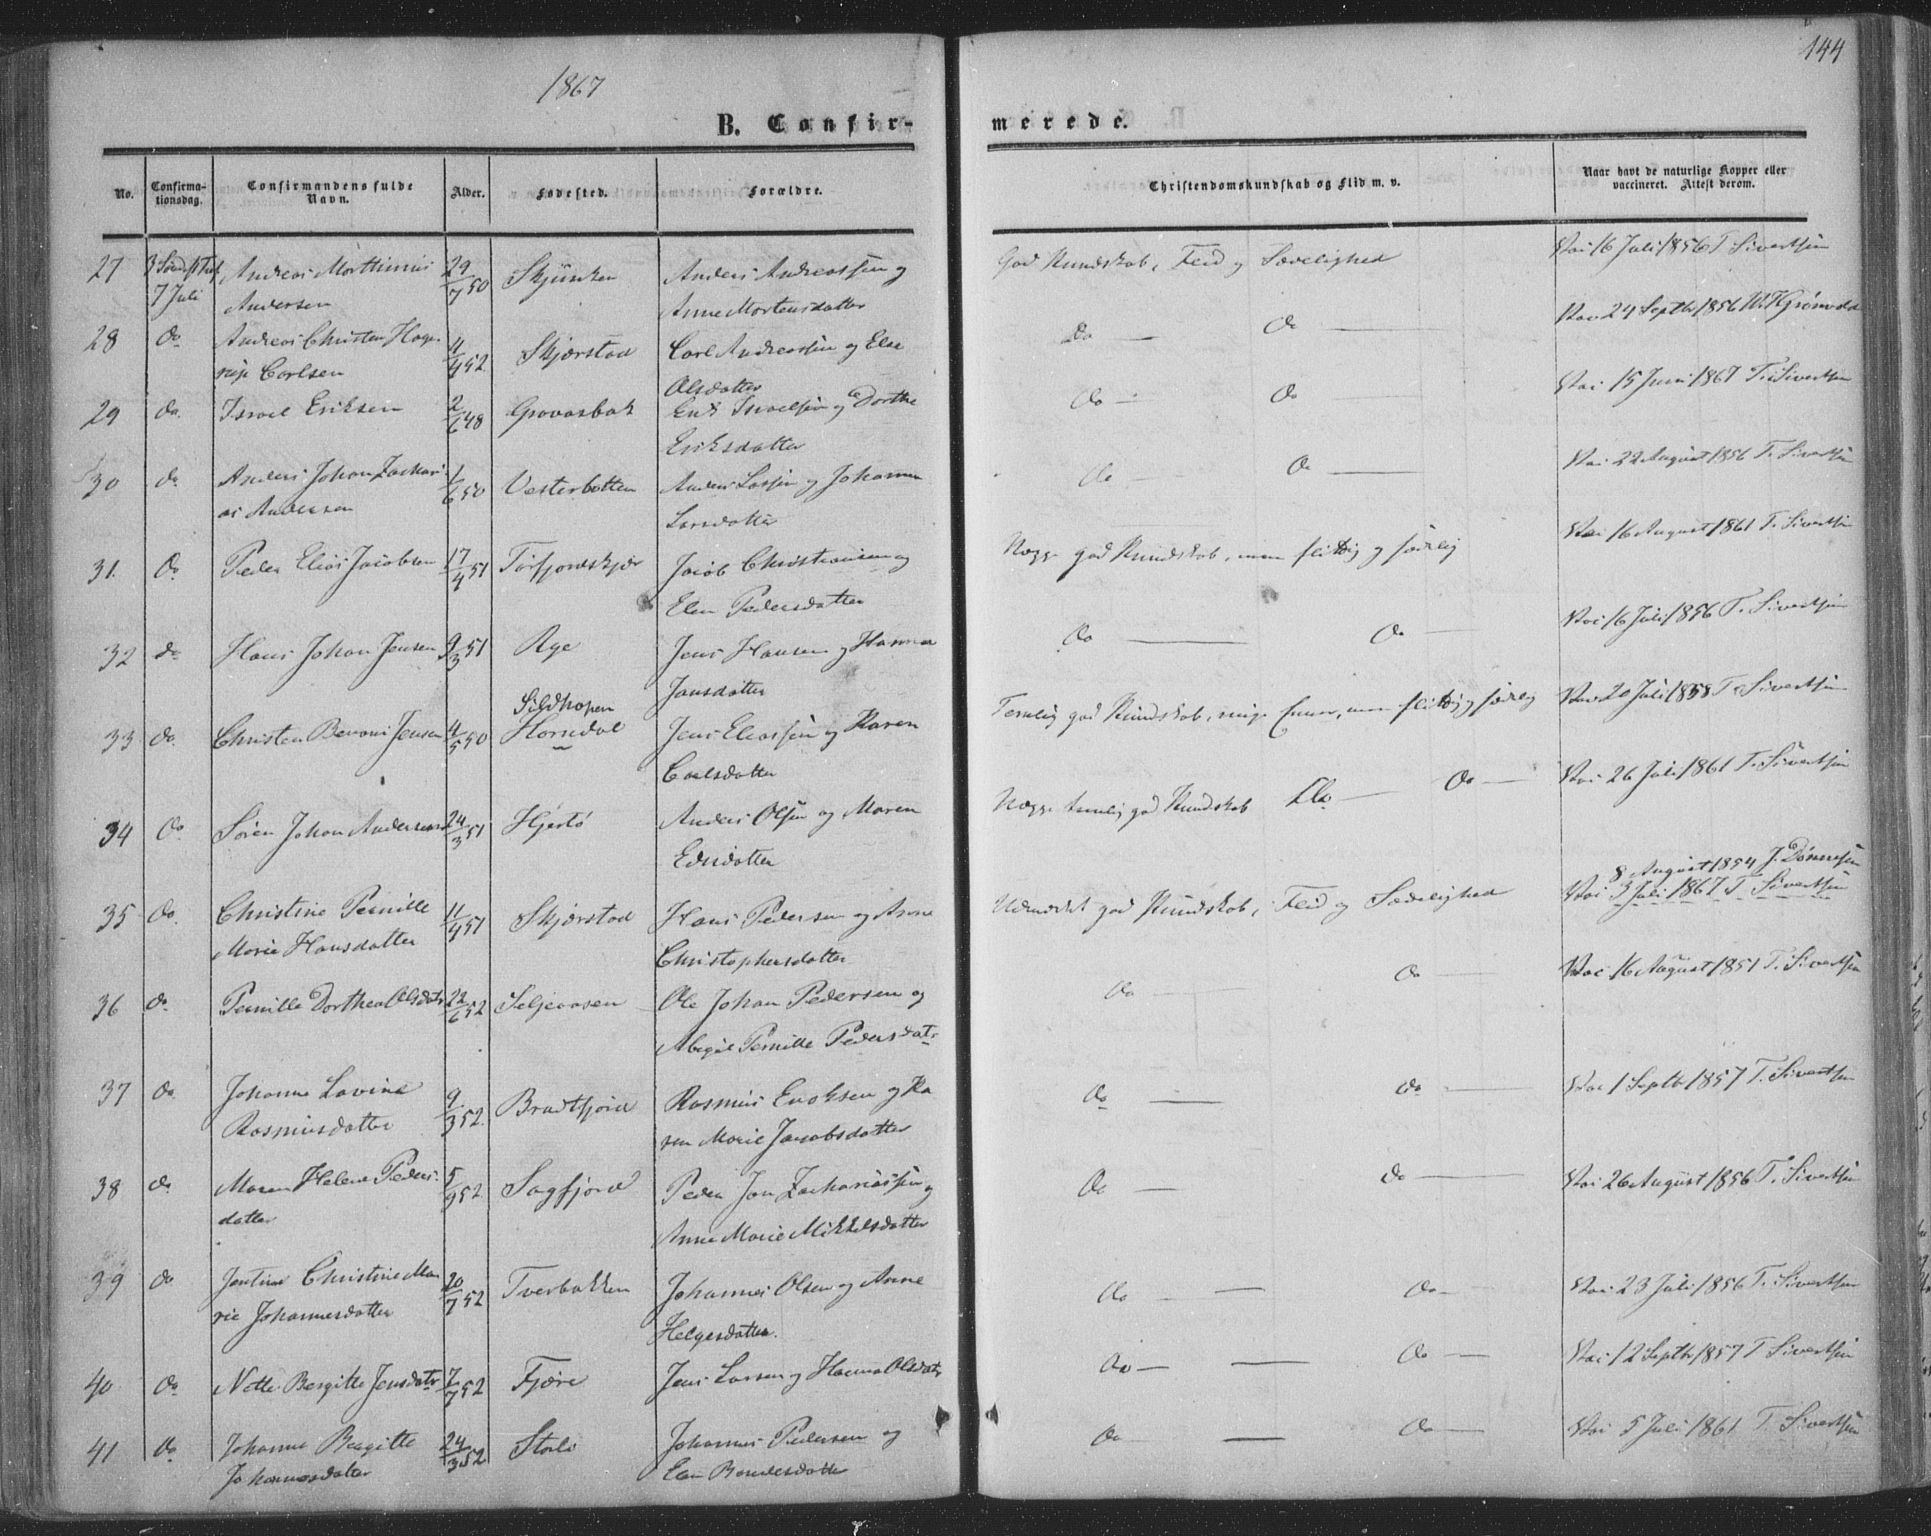 144
1867
B. Confir-
merede.
No.
Confirma-
tionsdag.
Confirmandens fulde
Navn.
Alder.
Fødested.
Forældre.
Christendomskundskab og Flid m. v.
Naar havt de naturlige Kopper eller
vaccineret. Attest derom.
27 7 Juli Andreas Morthinus 29/7 50 Anders Andreassen og God Kundskab, Flid og Sædelighed Vac 16 Juli 1856 T. Sivertsen
Andersen Anne Mortensdatter
28 do Andreas Christen 4/4 52 Skjærstad Carl Andreassen og Else Do — Do — Vac 24 Septbr 1856
Carlsen Olsdatter
29 do Israel Eriksen 2/6 48 Govasbak Erik Israelsen og Dorthe Do — Do Vac 15 Juni 1867 T. Sivertsen
Eriksdatter
30 do Anders Johan Zachari 1/6 50 Vesterbotten Anders Larsen og Johanna Do — Do — Vac 22 August 1856 T. Sivertsen
as Andersen Larsdatter
31. Do Peder Elias Jacobsen 17/4 51 Torfjordskjær Jacob Christiansen og Nogge god Kundskab, men flittig og sædelig Vac 16 August 1861 T. Sivertsen
Elen Pedersdatter
32 do Hans Johan Jensen 9/3 51 Age Jens Hansen og Hanna Do — Do — Vac 16 Juli 1856 T. Sivertsen
Jansdatter
Sildhopen
33 do Christen Benoni Jensen 4/5 50 Horndal Jens Eliassen og Karen Temlig god Kundskab, ringe Evner, men flittig og sædelig Vac 20 Juli 1858 T. Sivertsen
Carlsdatter
34 Do Søren Johan Andersen 24/3 51 Hjertø Anders Olsen og Maren Nogge temlig god Kundskab Do — Do — Vac 26 Juli 1861 T. Sivertsen
8 August 1854 J. Dønnesen
35 Do Christine Pernille 11/4 51 Skjærstad Hans Pedersen og Anne Udmærket god Kundskab, Flid og Sædelighed Vac 3 Juli 1867 T. Sivertsen
Marie Hansdatter Christophersdatter
36 do Pernille Dorthea Olsdatr 22/6 52 Seljeaasen Ole Johan Pedersen og Do — Do — Vac 16 August 1851 T. Sivertsen
Abigael Pernille Pedersdatr
37 do Johanna Lavina 9/3 52. Rasmus Enoksen og Ka Do — Do — Vac 1 Septbr 1857 T. Sivertsen
Rasmusdatter ren Marie Jacobsdatter
38 do Maren Helene Peders- 5/9 52 Sagfjord Peder Jan Zachariassen og Do — Do — Vac 26 August 1856 T. Sivertsen
datter Anne Marie Mikkelsdatter
39 do Jentine Christine Ma 20/7 52 Tverbakken Johannes Olsen og Anne Do — — Do — Vac 23 Juli 1856 T. Sivertsen
rie Johannesdatter Helgesdatter.
40 do Nette Bergitte Jensdatr 7/7 52 Fjære Jens Larsen og Hanna Olsdatr Do — — Do — Vac 12 Septbr 1857 T. Sivertsen
41 do Johanna Bergitte 24/3 52 Storli Johannes Pedersen og Do — — Do — Vac 5 Juli 1861 T. Sivertsen
Johannesdatter Elen